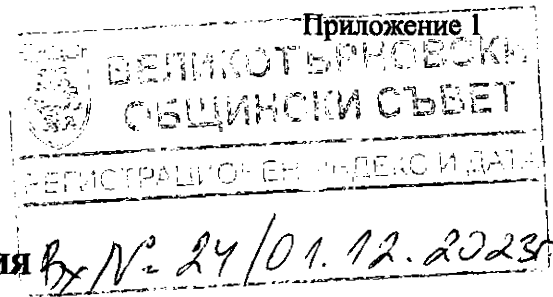 Приложение 1
ВЕЛИКОТЪРНОВСКИ
ОБЩИНСКИ СЪВЕТ
РЕГИСТРАЦИОНЕН ИНДЕКС И ДАТА
ИЯ Вх № 24/01.12.2023г